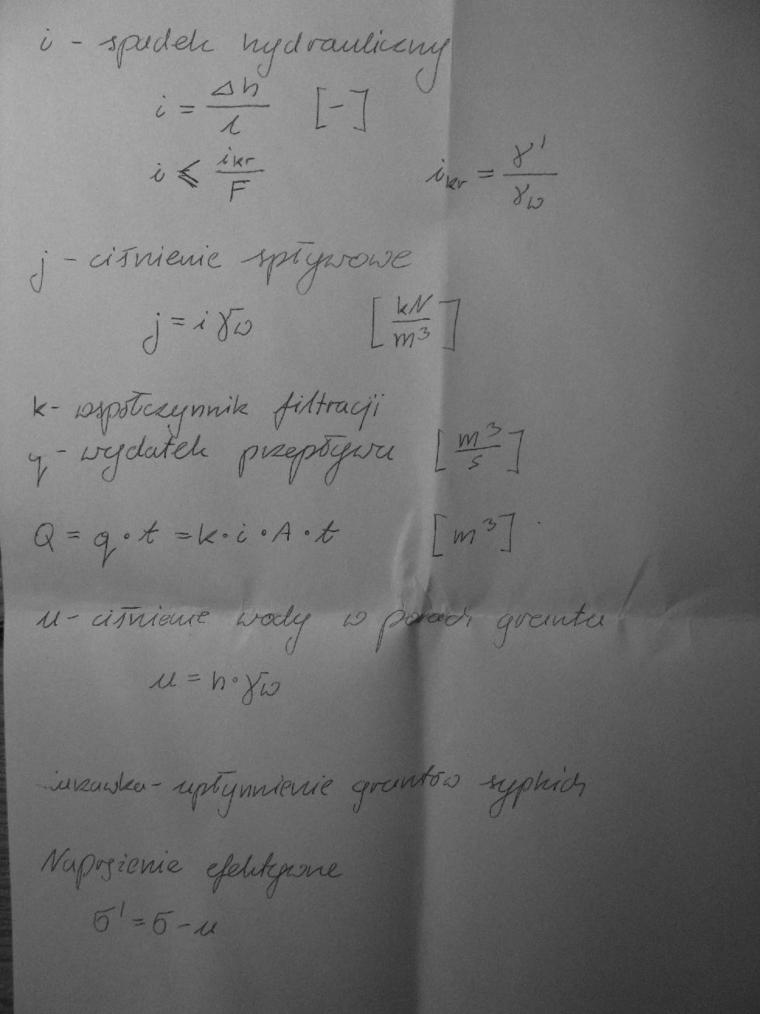 i - spadek hydrauliczny
i = Δh/l [-]
i ≤ i_kr/F i_kr = γ'/γ_w
j - ciśnienie spływowe
j = i γ_w [kN/m³]
k - współczynnik filtracji
q - wydatek przepływu [m³/s]
Q = q · t = k · i · A · t [m³]
u - ciśnienie wody w porach gruntu
u = h · γ_w
kurzawka - upłynnienie gruntów sypkich
Naprężenie efektywne
σ' = σ - u